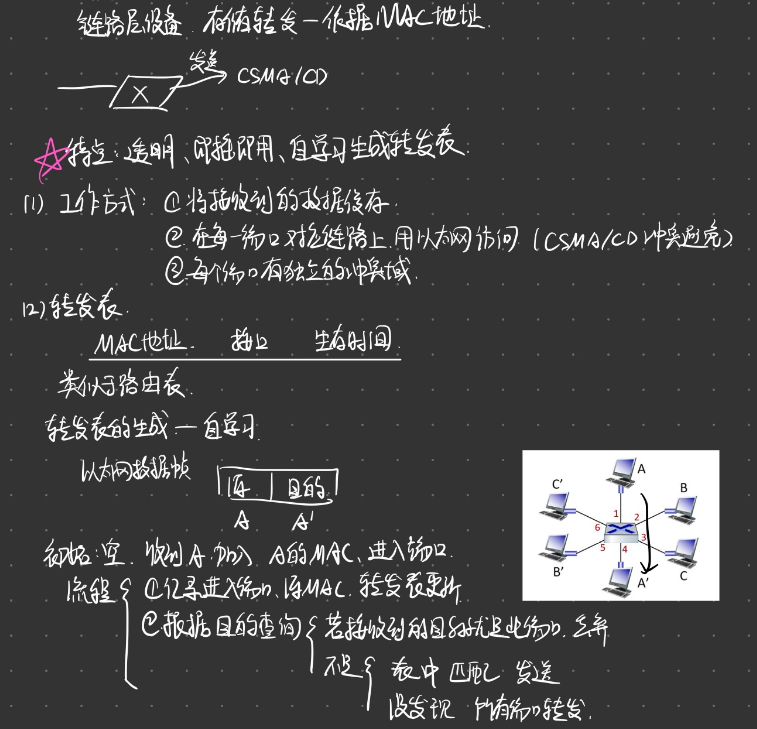 链路层设备 存储转发—依据MAC地址
发送
X
CSMA/CD
特点:透明、即插即用、自学习生成转发表.
(1) 工作方式: ①将接收到的数据缓存.
②在每一端口对应链路上用以太网访问 (CSMA/CD冲突避免)
③每个端口有独立的冲突域.
(2)转发表.
MAC地址. 接口 生存时间.
类似于路由表.
转发表的生成—自学习
以太网数据帧
源 目的
A A'
初始:空. 收到A.加入 A的MAC、进入端口.
流程
①记录进入端口、源MAC.转发表更新
②根据目的查询
若接收到的目的就是此端口.丢弃
不是
表中匹配 发送
没发现 所有端口转发.
A
C'
B
1
2
6
3
5
4
B'
A'
C